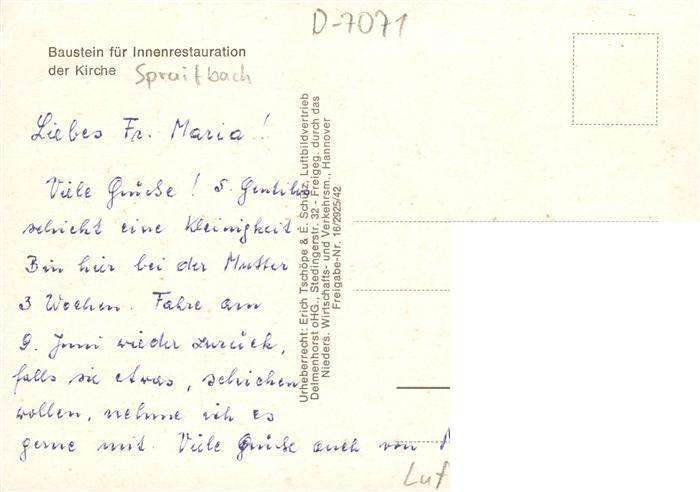 D-7071
Baustein für Innenrestauration
der Kirche Spraitbach
Liebes Frl. Maria!
Viele Grüße! S. Gentilis
schickt eine Kleinigkeit
Bin hier bei der Mutter
3 Wochen. Fahre am
9. Juni wieder zurück,
falls sie etwas, schicken
wollen, nehme ich es
gerne mit. Viele Grüße auch von
Urheberrecht: Erich Tschöpe & E. Schulz, Luftbildvertrieb
Delmenhorst oHG., Stedingerstr. 32 - Freigeg. durch das
Nieders. Wirtschafts- und Verkehrsm., Hannover
Freigabe-Nr. 16/2925/42
Luf